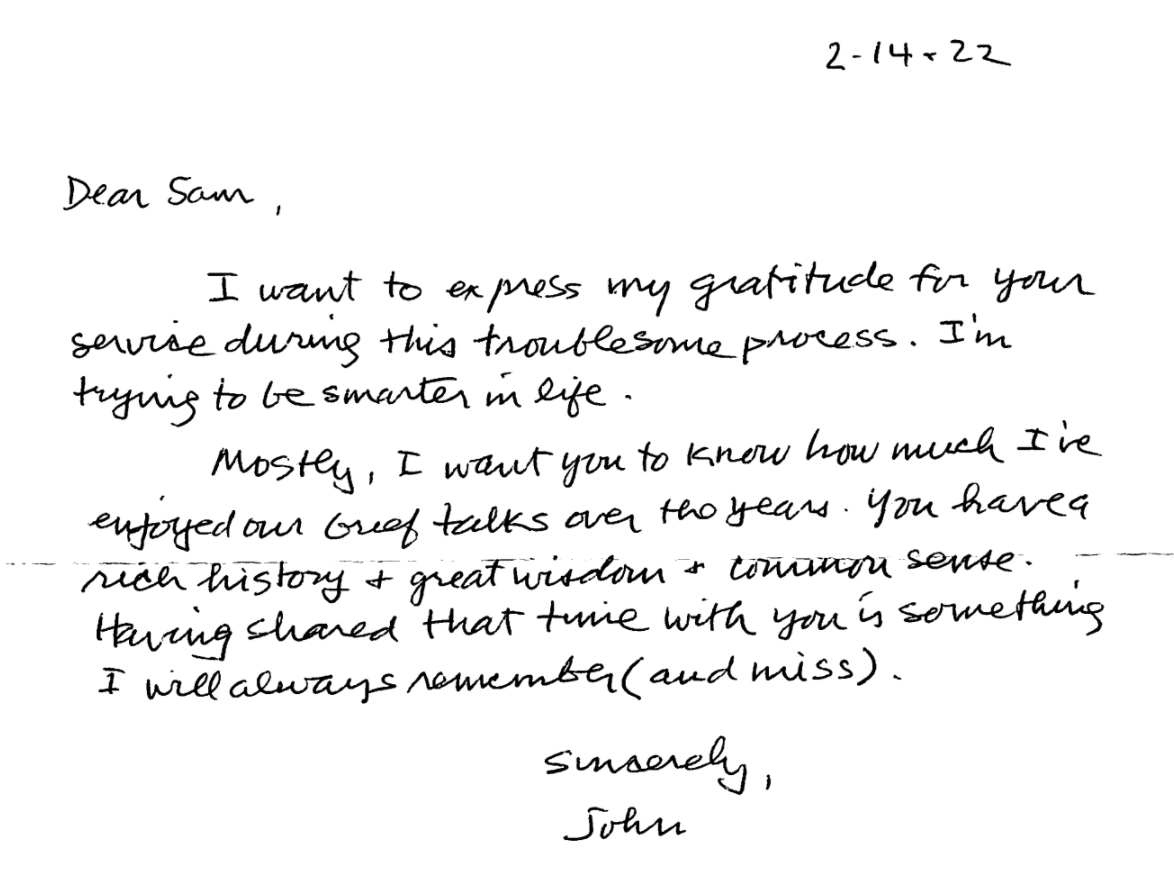 2-14-22
Dear Sam,
I want to express my gratitude for your
service during this troublesome process. I'm
trying to be smarter in life.
Mostly, I want you to know how much I've
enjoyed our brief talks over the years. You have a
rich history + great wisdom + common sense.
Having shared that time with you is something
I will always remember (and miss).
Sincerely,
John